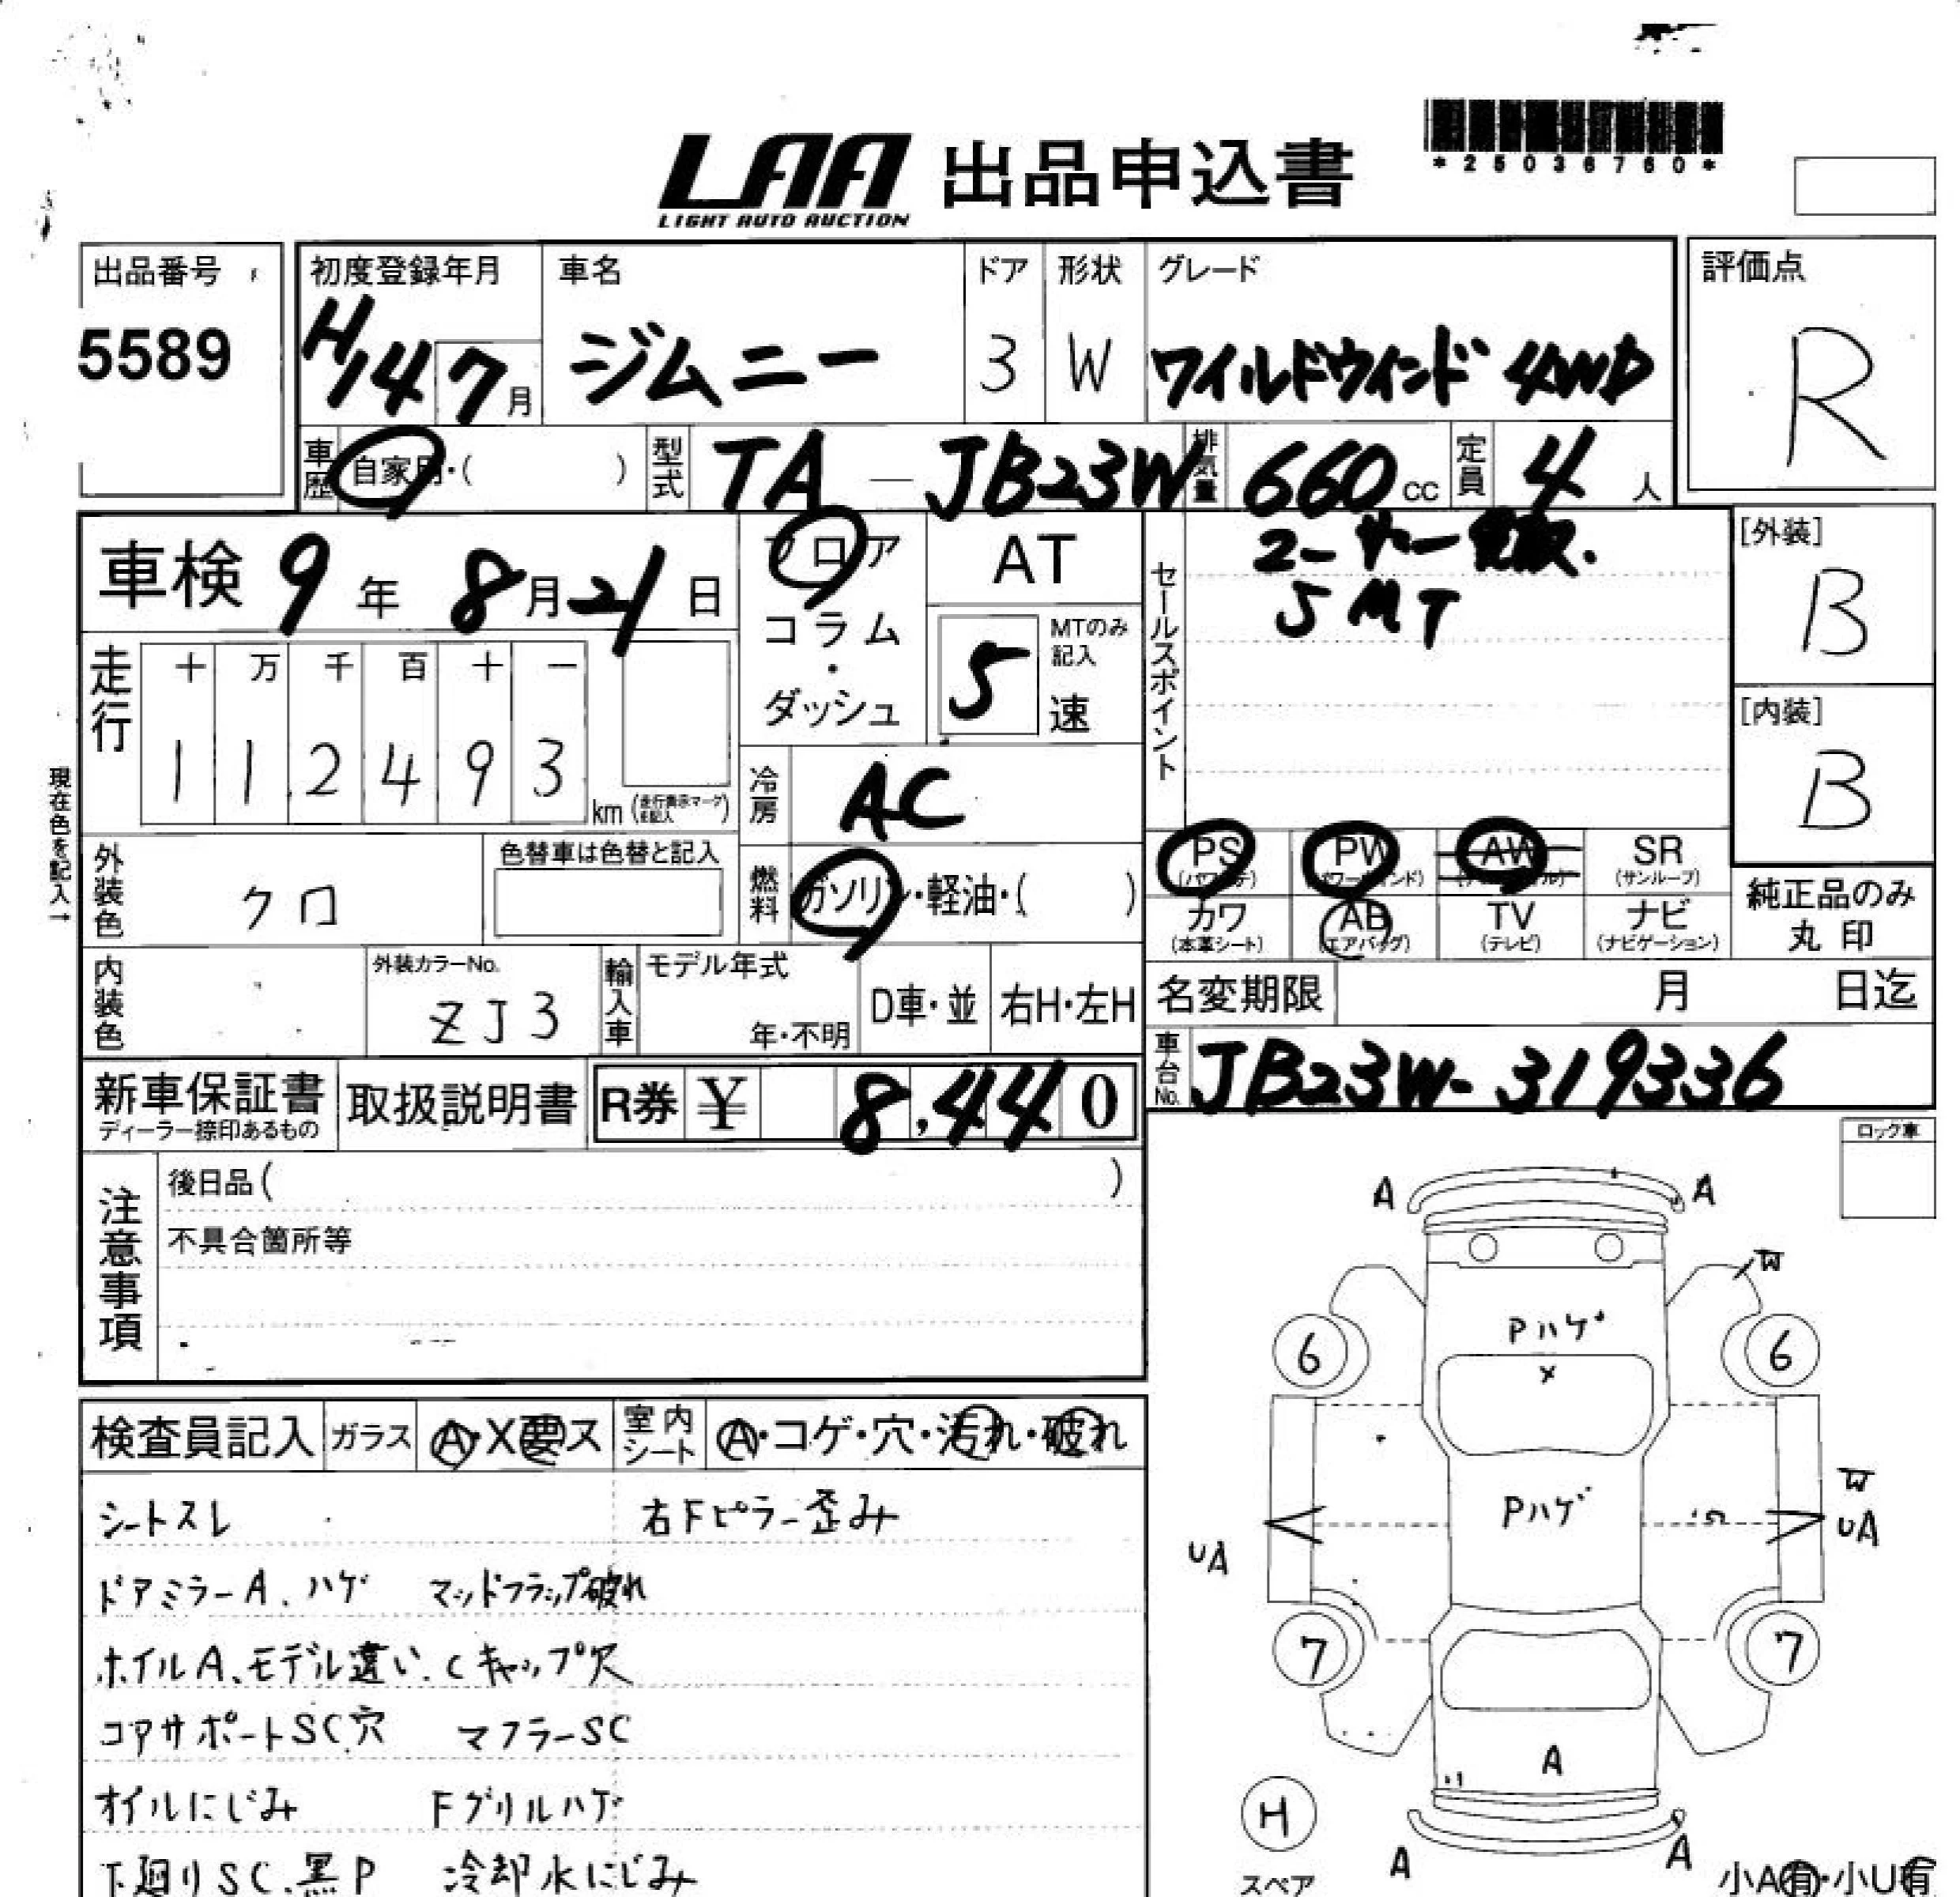 LAA 出品申込書
LIGHT AUTO AUCTION
*25036760*
出品番号
5589
初度登録年月
H14 7月
車名
ジムニー
ドア
3
形状
W
グレード
ワイルドウインド 4WD
評価点
R
車歴 自家用・( )
型式 TA-JB23W
排気量 660cc
定員 4人
車検 9年 8月21日
フロア
コラム・ダッシュ
AT
5
MTのみ記入
速
セールスポイント
5MT
[外装]
B
[内装]
B
走行
十 万 千 百 十 一
1 1 2 4 9 3
km
冷房 AC
現在色を記入→
外装色 クロ
色替車は色替と記入
燃料 ガソリン・軽油・( )
PS
PW
AW
SR
(サンルーフ)
カワ
(本革シート)
AB
(エアバッグ)
TV
(テレビ)
ナビ
(ナビゲーション)
純正品のみ
丸印
内装色
外装カラーNo.
ZJ3
輸入車
モデル年式
年・不明
D車・並
右H・左H
名変期限 月 日迄
新車保証書
ディーラー捺印あるもの
取扱説明書
R券 ¥ 8,440
車台No. JB23W-319336
ロック車
注意事項
後日品( )
不具合箇所等
検査員記入
ガラス A・X要ス
室内シート A・コゲ・穴・汚れ・破れ
シートスレ 右Fピラー歪み
ドアミラーA、ハゲ マッドフラップ破れ
ホイルA、モデル違い、Cキャップ欠
コアサポートSC穴 マフラーSC
オイルにじみ Fグリルハゲ
下廻りSC、黒P 冷却水にじみ
A A
W
Pハゲ
6 6
X
Pハゲ
W
UA UA
7 7
A
H
スペア
A A
小A有・小U有